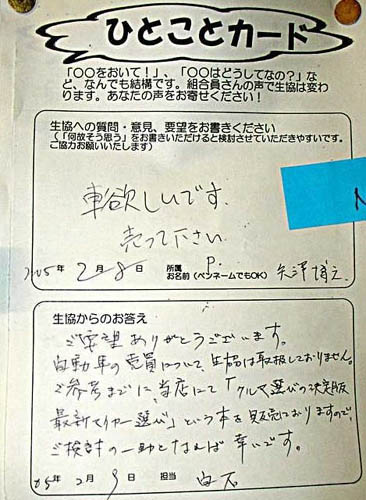 ひとことカード
「〇〇をおいて!」、「〇〇はどうしてなの?」な
ど、なんでも結構です。組合員さんの声で生協は変わ
ります。あなたの声をお寄せください!
生協への質問・意見、要望をお書きください
(「何故そう思う」をお書きいただけると検討させていただきやすいです。
ご協力お願いいたします)
車欲しいです。
売って下さい
2005年 2月8日
所属 P.
お名前(ペンネームでもOK) 矢澤
生協からのお答え
ご要望ありがとうございます。
自動車の売買について、生協は取扱しておりません。
ご参考までに、当店にて「クルマ選びの決定版
最新マイカー選び」という本を販売しておりますので、
ご検討の一助となれば幸いです。
05年 2月9日 担当 白石